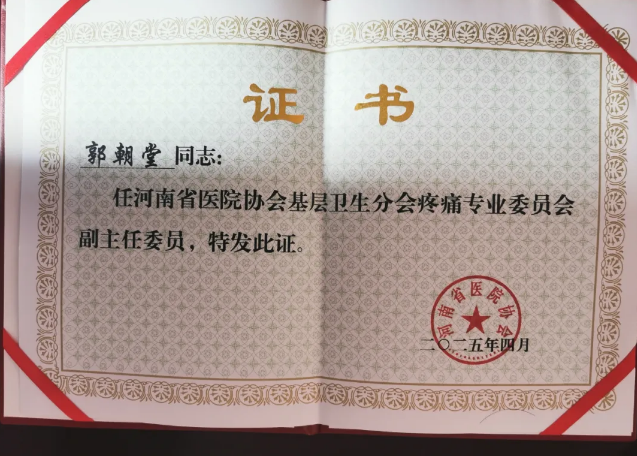 证 书
郭朝堂同志：
任河南省医院协会基层卫生分会疼痛专业委员会
副主任委员，特发此证。
河南省医院协会
二〇二五年四月